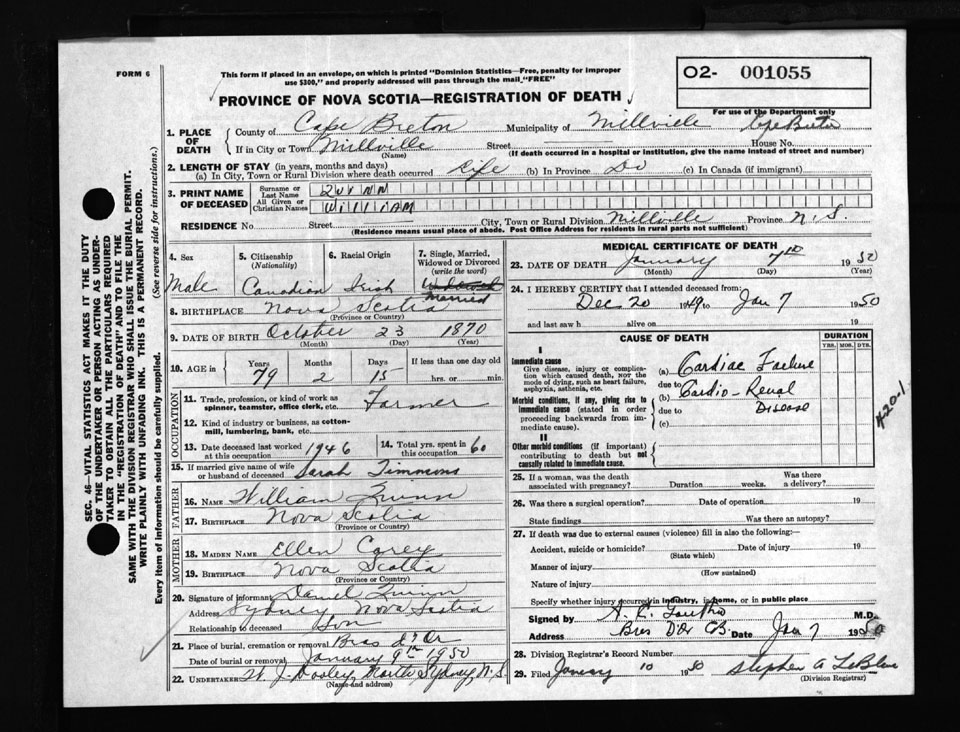 FORM 6
This form if placed in an envelope, on which is printed "Dominion Statistics—Free, penalty for improper
use $300," and properly addressed will pass through the mail "FREE"
O2- 001055
PROVINCE OF NOVA SCOTIA—REGISTRATION OF DEATH
For use of the Department only
1. PLACE OF DEATH { County of Cape Breton Municipality of Millville Cape Breton
If in City or Town Millville Street House No.
(Name) (If death occurred in a hospital or institution, give the name instead of street and number)
2. LENGTH OF STAY (in years, months and days)
(a) In City, Town or Rural Division where death occurred Life (b) In Province Do (c) In Canada (if immigrant)
3. PRINT NAME OF DECEASED { Surname or Last Name QUINN
All Given or Christian Names WILLIAM
RESIDENCE No. Street City, Town or Rural Division Millville Province N.S.
(Residence means usual place of abode. Post Office Address for residents in rural parts not sufficient)
4. Sex Male
5. Citizenship (Nationality) Canadian
6. Racial Origin Irish
7. Single, Married, Widowed or Divorced (write the word) Widowed Married
8. BIRTHPLACE Nova Scotia
(Province or Country)
9. DATE OF BIRTH October 23 1870
(Month) (Day) (Year)
10. AGE in { Years 79 Months 2 Days 15 If less than one day old hrs. or min.
OCCUPATION
11. Trade, profession, or kind of work as spinner, teamster, office clerk, etc. Farmer
12. Kind of industry or business, as cotton-mill, lumbering, bank, etc.
13. Date deceased last worked at this occupation 1946
14. Total yrs. spent in this occupation 60
15. If married give name of wife or husband of deceased Sarah Timmons
FATHER
16. NAME William Quinn
17. BIRTHPLACE Nova Scotia
(Province or Country)
MOTHER
18. MAIDEN NAME Ellen Carey
19. BIRTHPLACE Nova Scotia
(Province or Country)
20. Signature of informant Daniel Quinn
Address Sydney Nova Scotia
Relationship to deceased Son
21. Place of burial, cremation or removal Bras d'Or
Date of burial or removal January 9th 1950
22. UNDERTAKER W. J. Dooley, North Sydney, N.S.
(Name and address)
MEDICAL CERTIFICATE OF DEATH
23. DATE OF DEATH January 7th 1950
(Month) (Day) (Year)
24. I HEREBY CERTIFY that I attended deceased from:
Dec 20 1949 to Jan 7 1950
and last saw h alive on 19
CAUSE OF DEATH
DURATION
YRS. MOS. DYS.
I
Immediate cause
Give disease, injury or complication which caused death, not the mode of dying, such as heart failure, asphyxia, asthenia, etc.
(a) Cardiac Failure
due to
Morbid conditions, if any, giving rise to immediate cause (stated in order proceeding backwards from immediate cause).
(b) Cardio-Renal
due to Disease
(c)
II
Other morbid conditions (if important) contributing to death but not causally related to immediate cause.
420-1
25. If a woman, was the death associated with pregnancy? Duration weeks. Was there a delivery?
26. Was there a surgical operation? Date of operation 19
State findings Was there an autopsy?
27. If death was due to external causes (violence) fill in also the following:—
Accident, suicide or homicide? Date of injury 19
(State which)
Manner of injury
(How sustained)
Nature of injury
Specify whether injury occurred in industry, in home, or in public place
Signed by M.D.
Address Bras D'Or CB. Date Jan 7 1950
28. Division Registrar's Record Number
29. Filed January 10 1950 Stephen A LeBlanc
(Division Registrar)
SEC. 46—VITAL STATISTICS ACT MAKES IT THE DUTY
OF THE UNDERTAKER OR PERSON ACTING AS UNDER-
TAKER TO OBTAIN ALL THE PARTICULARS REQUIRED
IN THE "REGISTRATION OF DEATH" AND TO FILE THE
SAME WITH THE DIVISION REGISTRAR WHO SHALL ISSUE THE BURIAL PERMIT.
WRITE PLAINLY WITH UNFADING INK. THIS IS A PERMANENT RECORD.
Every item of information should be carefully supplied. (See reverse side for instructions.)